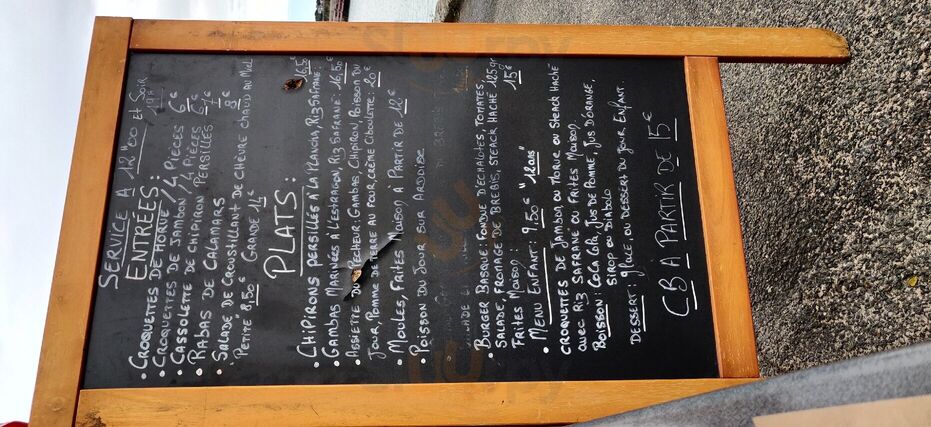 SERVICE A 12H30 ET SOIR
19H
ENTRÉES:
• CROQUETTES DE MORUE /4 PIÈCES 6€
• CROQUETTES DE JAMBON /4 PIÈCES
• CASSOLETTE DE CHIPIRON PERSILLÉS
• RABAS DE CALAMARS
• SALADE DE CROUSTILLANT DE CHÈVRE CHAUD AU MIEL
PETITE 8,50€ GRANDE 14€
PLATS:
• CHIPIRONS PERSILLÉS À LA PLANCHA, RIZ SAFRANÉ: 16,50
• GAMBAS MARINÉES À L'ESTRAGON RIZ SAFRANÉ: 16,50
• ASSIETTE DU PÊCHEUR: GAMBAS, CHIPIRON, POISSON DU
JOUR, POMME DE TERRE AU FOUR, CRÈME CIBOULETTE: 20€
• MOULES, FRITES MAISON À PARTIR DE 12€
• POISSON DU JOUR SUR ARDOISE
• BURGER BASQUE: FONDUE D'ÉCHALOTES, TOMATES,
SALADE, FROMAGE DE BREBIS, STEACK HACHÉ 125gr
FRITES MAISON: 15€
• MENU ENFANT: 9,50€ "12 ans"
CROQUETTES DE JAMBON OU MORUE OU STEACK HACHÉ
AVEC RIZ SAFRANÉ OU FRITES MAISON.
BOISSON: COCA COLA, JUS DE POMME, JUS D'ORANGE,
SIROP OU DIABOLO
DESSERT: GLACE, OU DESSERT DU JOUR ENFANT
CB À PARTIR DE 15€